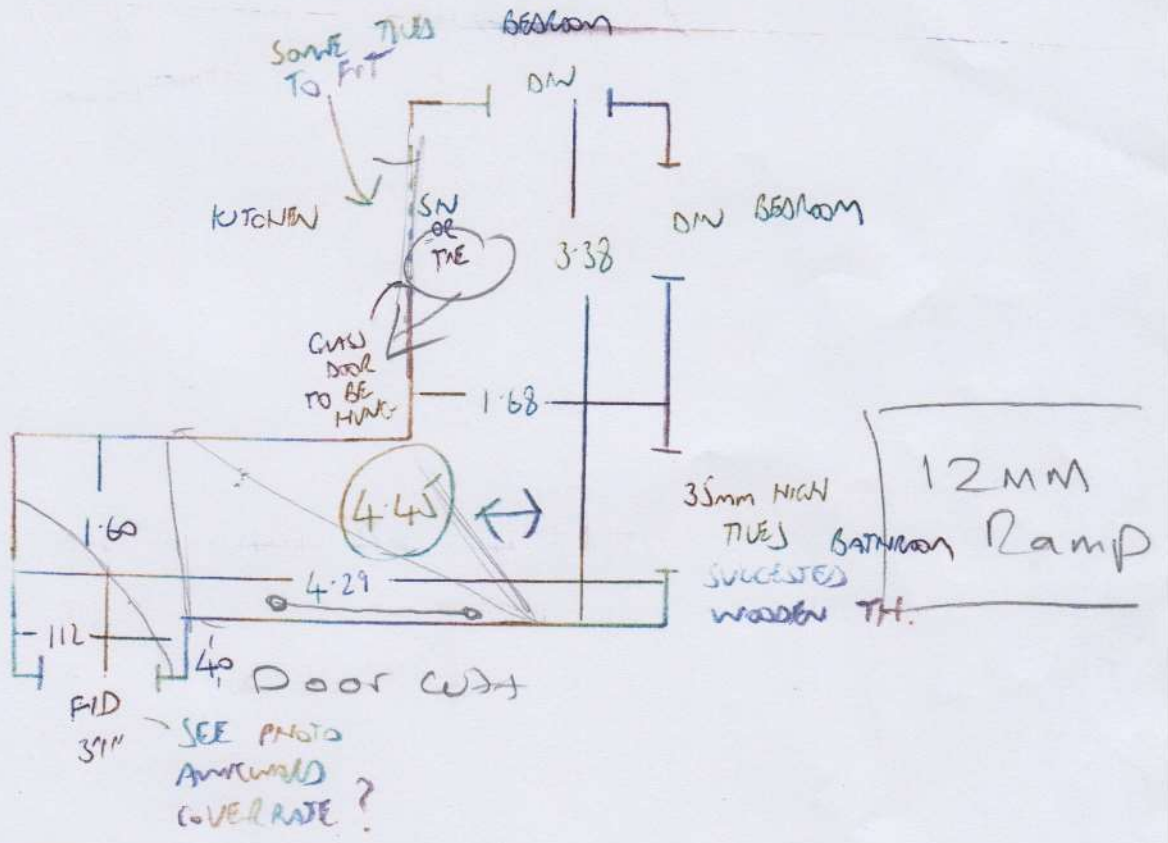 SOME TILES
TO FIT
BEDROOM
D/W
KITCHEN
S/N
OR
TILE
D/W BEDROOM
3.38
GLASS
DOOR
TO BE
HUNG
1.68
4.45
1.60
35mm HIGH
TILES BATHROOM
SUGGESTED
WOODEN TH.
12MM
Ramp
4.29
1.12
40
Door Cut
F/D
3'1"
SEE PHOTO
AWKWARD
COVER RATE ?